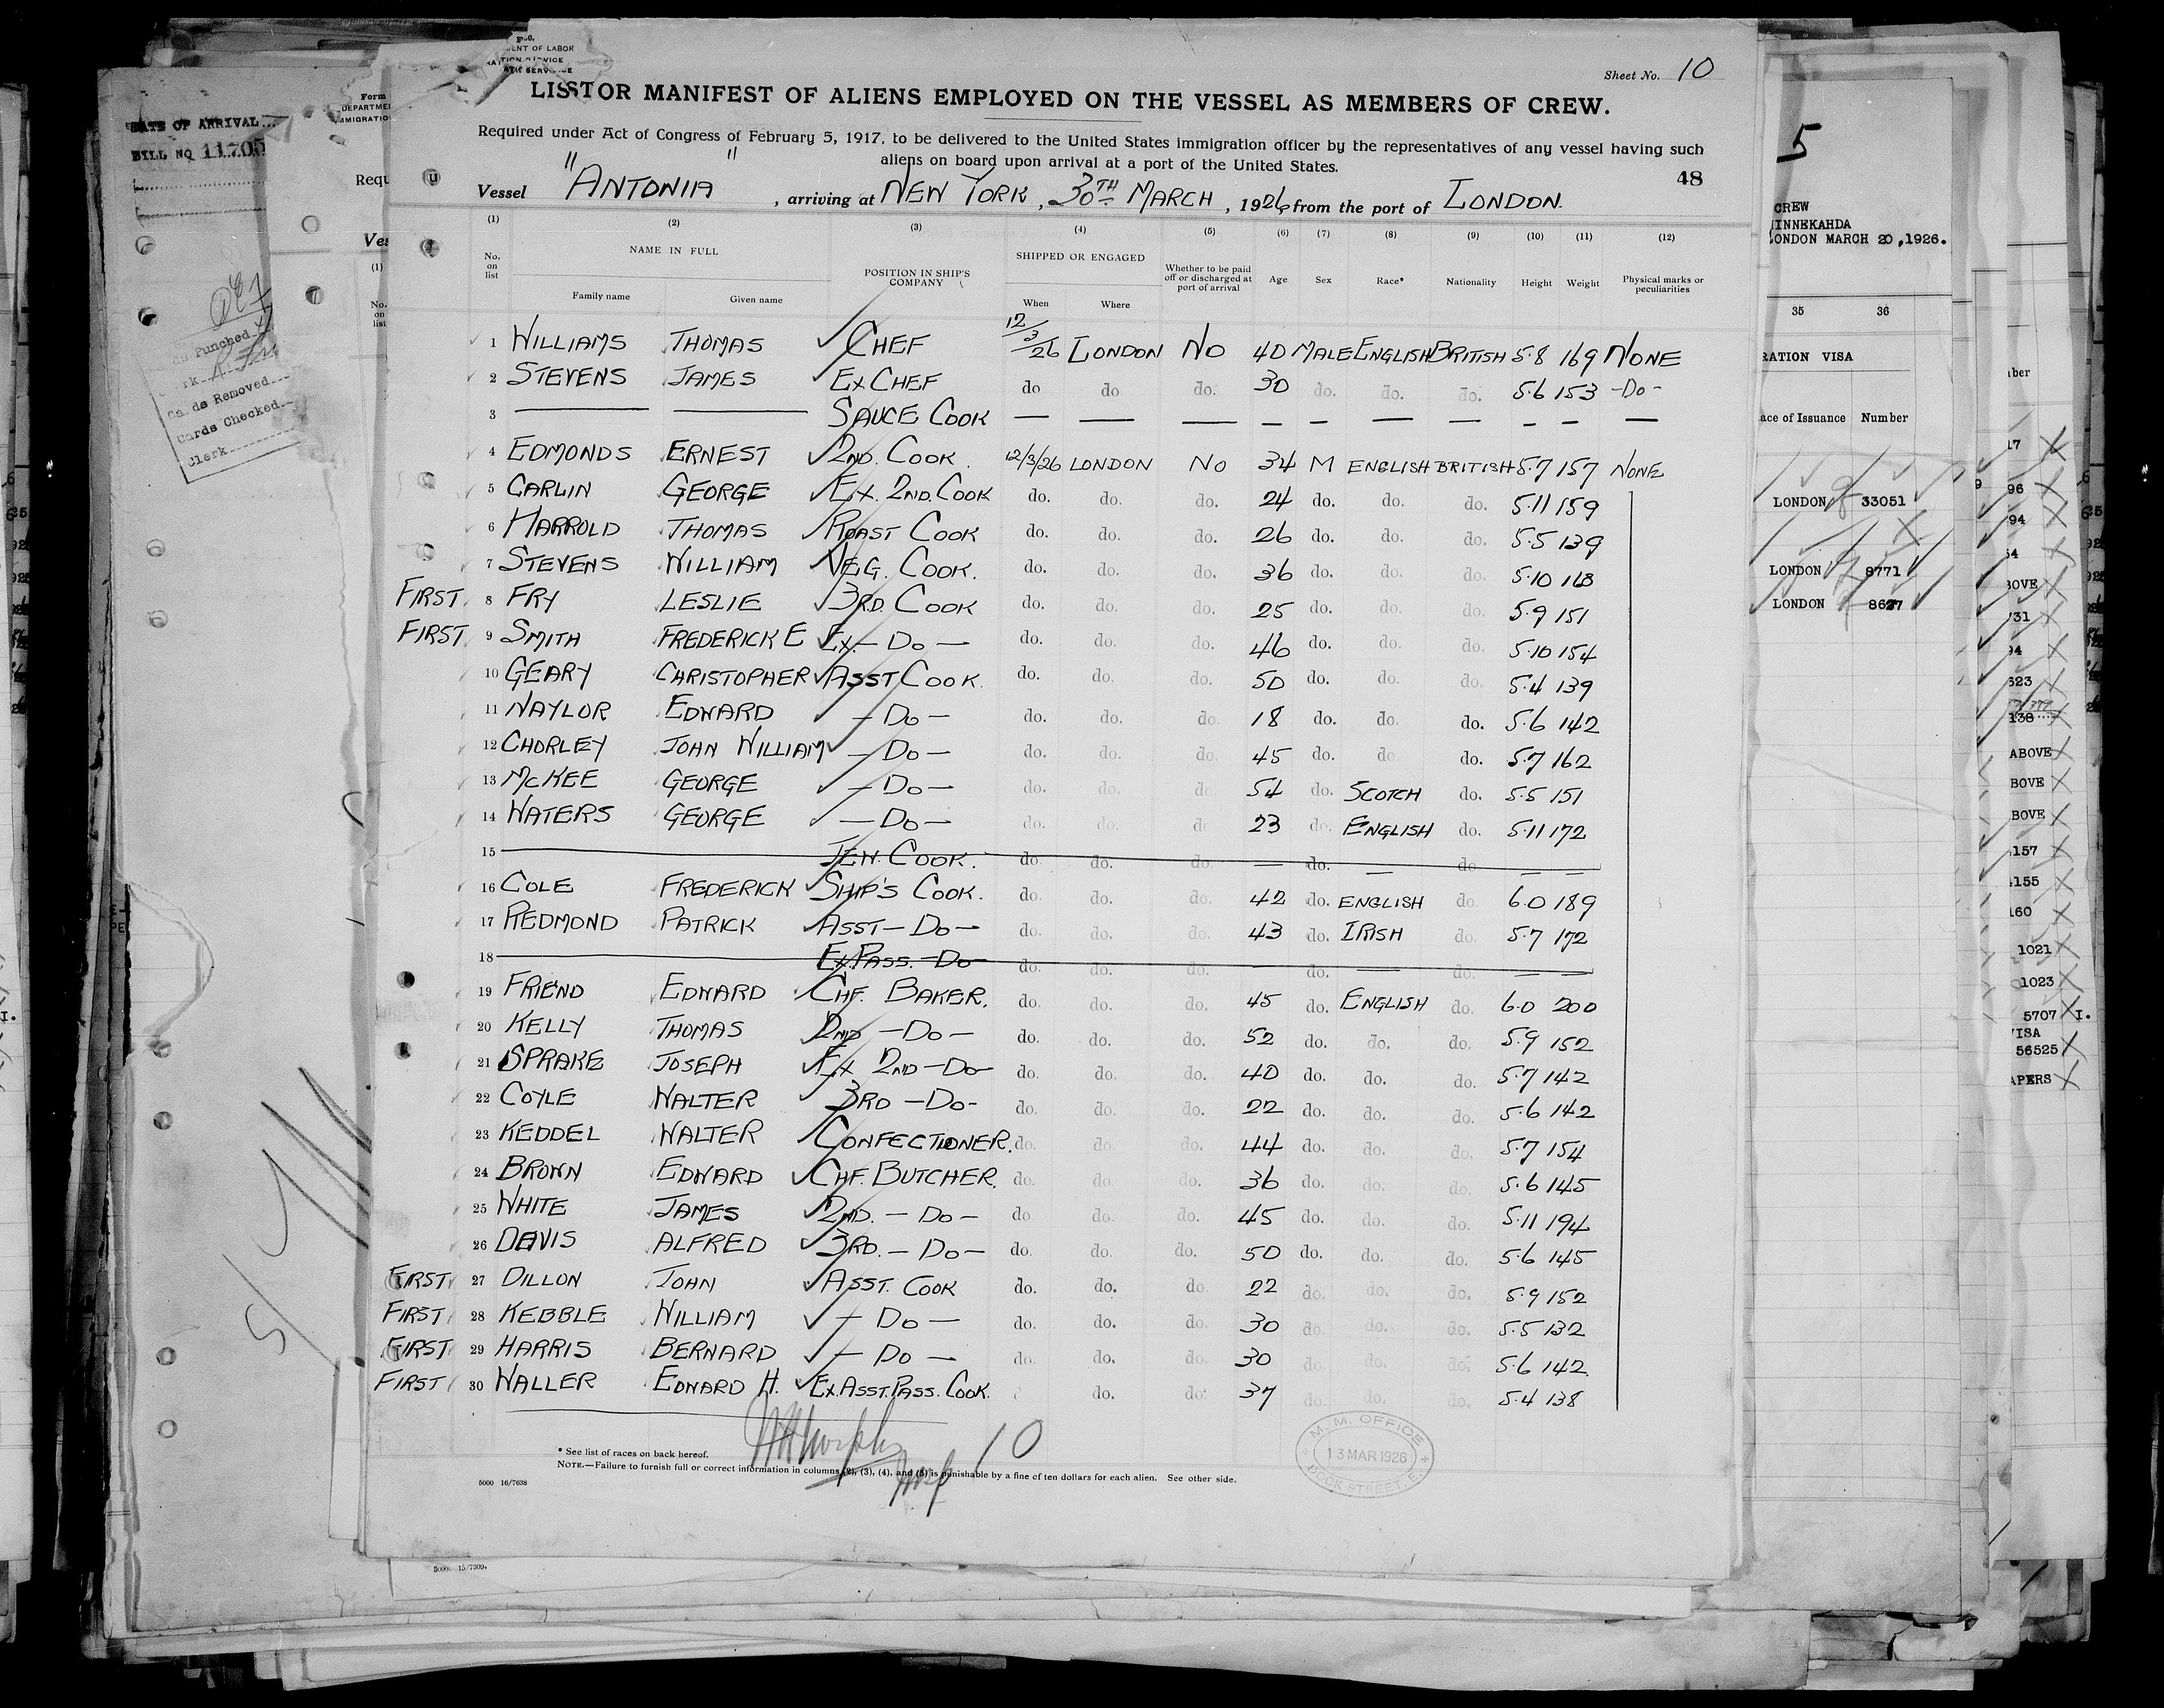 Sheet No. 10
LIST OR MANIFEST OF ALIENS EMPLOYED ON THE VESSEL AS MEMBERS OF CREW.
Required under Act of Congress of February 5, 1917, to be delivered to the United States immigration officer by the representatives of any vessel having such
aliens on board upon arrival at a port of the United States.
48
Vessel "ANTONIA", arriving at NEW YORK, 30TH MARCH, 1926 from the port of LONDON.
(1) (2) (3) (4) (5) (6) (7) (8) (9) (10) (11) (12)
No. on list NAME IN FULL Family name Given name POSITION IN SHIP'S COMPANY SHIPPED OR ENGAGED When Where Whether to be paid off or discharged at port of arrival Age Sex Race* Nationality Height Weight Physical marks or peculiarities
1 WILLIAMS THOMAS CHEF 12/3/26 LONDON NO 40 MALE ENGLISH BRITISH 5.8 169 NONE
2 STEVENS JAMES EX CHEF do do do. 30 do. do. do. 5.6 153 -DO-
3 — — SAUCE COOK — — — — — — — — — —
4 EDMONDS ERNEST 2ND. COOK. 12/3/26 LONDON NO 34 M ENGLISH BRITISH 5.7 157 NONE
5 CARLIN GEORGE EX. 2ND. COOK do. do. do. 24 do. do. do. 5.11 159
6 HARROLD THOMAS ROAST COOK do. do. do. 26 do. do. do. 5.5 139
7 STEVENS WILLIAM VEG. COOK. do. do. do. 36 do. do. do. 5.10 168
FIRST 8 FRY LESLIE 3RD. COOK do. do. do. 25 do. do. do. 5.9 151
FIRST 9 SMITH FREDERICK E EX.—DO— do. do. do. 46 do. do. do. 5.10 154
10 GEARY CHRISTOPHER ASST COOK. do. do. do. 50 do. do. do. 5.4 139
11 NAYLOR EDWARD —DO— do. do. do. 18 do. do. do. 5.6 142
12 CHORLEY JOHN WILLIAM —DO— do. do. do. 45 do. do. do. 5.7 162
13 McKEE GEORGE —DO— do. do. do. 54 do. SCOTCH do. 5.5 151
14 WATERS GEORGE —DO— do. do. d 23 do. ENGLISH do. 5.11 172
15 JEW. COOK. do. do. do. — do. — do — —
16 COLE FREDERICK SHIP'S COOK. do. do. do. 42 do. ENGLISH do. 6.0 189
17 REDMOND PATRICK ASST—DO— do. do. do. 43 do. IRISH do. 5.7 172
18 EX.PASS.—DO— do. do. do. — do. — do. — —
19 FRIEND EDWARD CHF. BAKER. do. do. do. 45 do. ENGLISH do. 6.0 200
20 KELLY THOMAS 2ND —DO— do. do. do. 52 do. do. do. 5.9 152
21 SPRAKE JOSEPH EX 2ND—DO— do. do. do. 40 do. do. do. 5.7 142
22 COYLE WALTER 3RD —DO— do. do. do. 22 do. do. do. 5.6 142
23 KEDDEL WALTER CONFECTIONER. do. do. do. 44 do. do. do. 5.7 154
24 BROWN EDWARD CHF. BUTCHER. do. do. do. 36 do. do. do. 5.6 145
25 WHITE JAMES 2ND.—DO— do do. do. 45 do. do. do. 5.11 194
26 DAVIS ALFRED 3RD.—DO— do. do. do. 50 do. do. do. 5.6 145
FIRST 27 DILLON JOHN ASST. COOK do. do. do 22 do. do. do. 5.9 152
FIRST 28 KEBBLE WILLIAM —DO— do. do. do. 30 do. do. do. 5.5 132
FIRST 29 HARRIS BERNARD —DO— do. do. do. 30 do. do. do. 5.6 142
FIRST 30 WALLER EDWARD H. EX.ASST.PASS. COOK. do. do. 37 do. do. do. 5.4 138
10
* See list of races on back hereof.
NOTE.—Failure to furnish full or correct information in columns (2), (3), (4), and (5) is punishable by a fine of ten dollars for each alien. See other side.
5000 16/7638
M. M. OFFICE
13 MAR 1926
DOCK STREET. E.
DATE OF ARRIVAL
BILL NO 11705
Form
(1)
Punched
Cards Removed
Cards Checked
Clerk
5000. 15/7309.
5
CREW
LONDON MARCH 20, 1926.
35 36
VISA
Issuance Number
LONDON 33051
LONDON 8771
LONDON
ABOVE
1021
1023
5707
56525